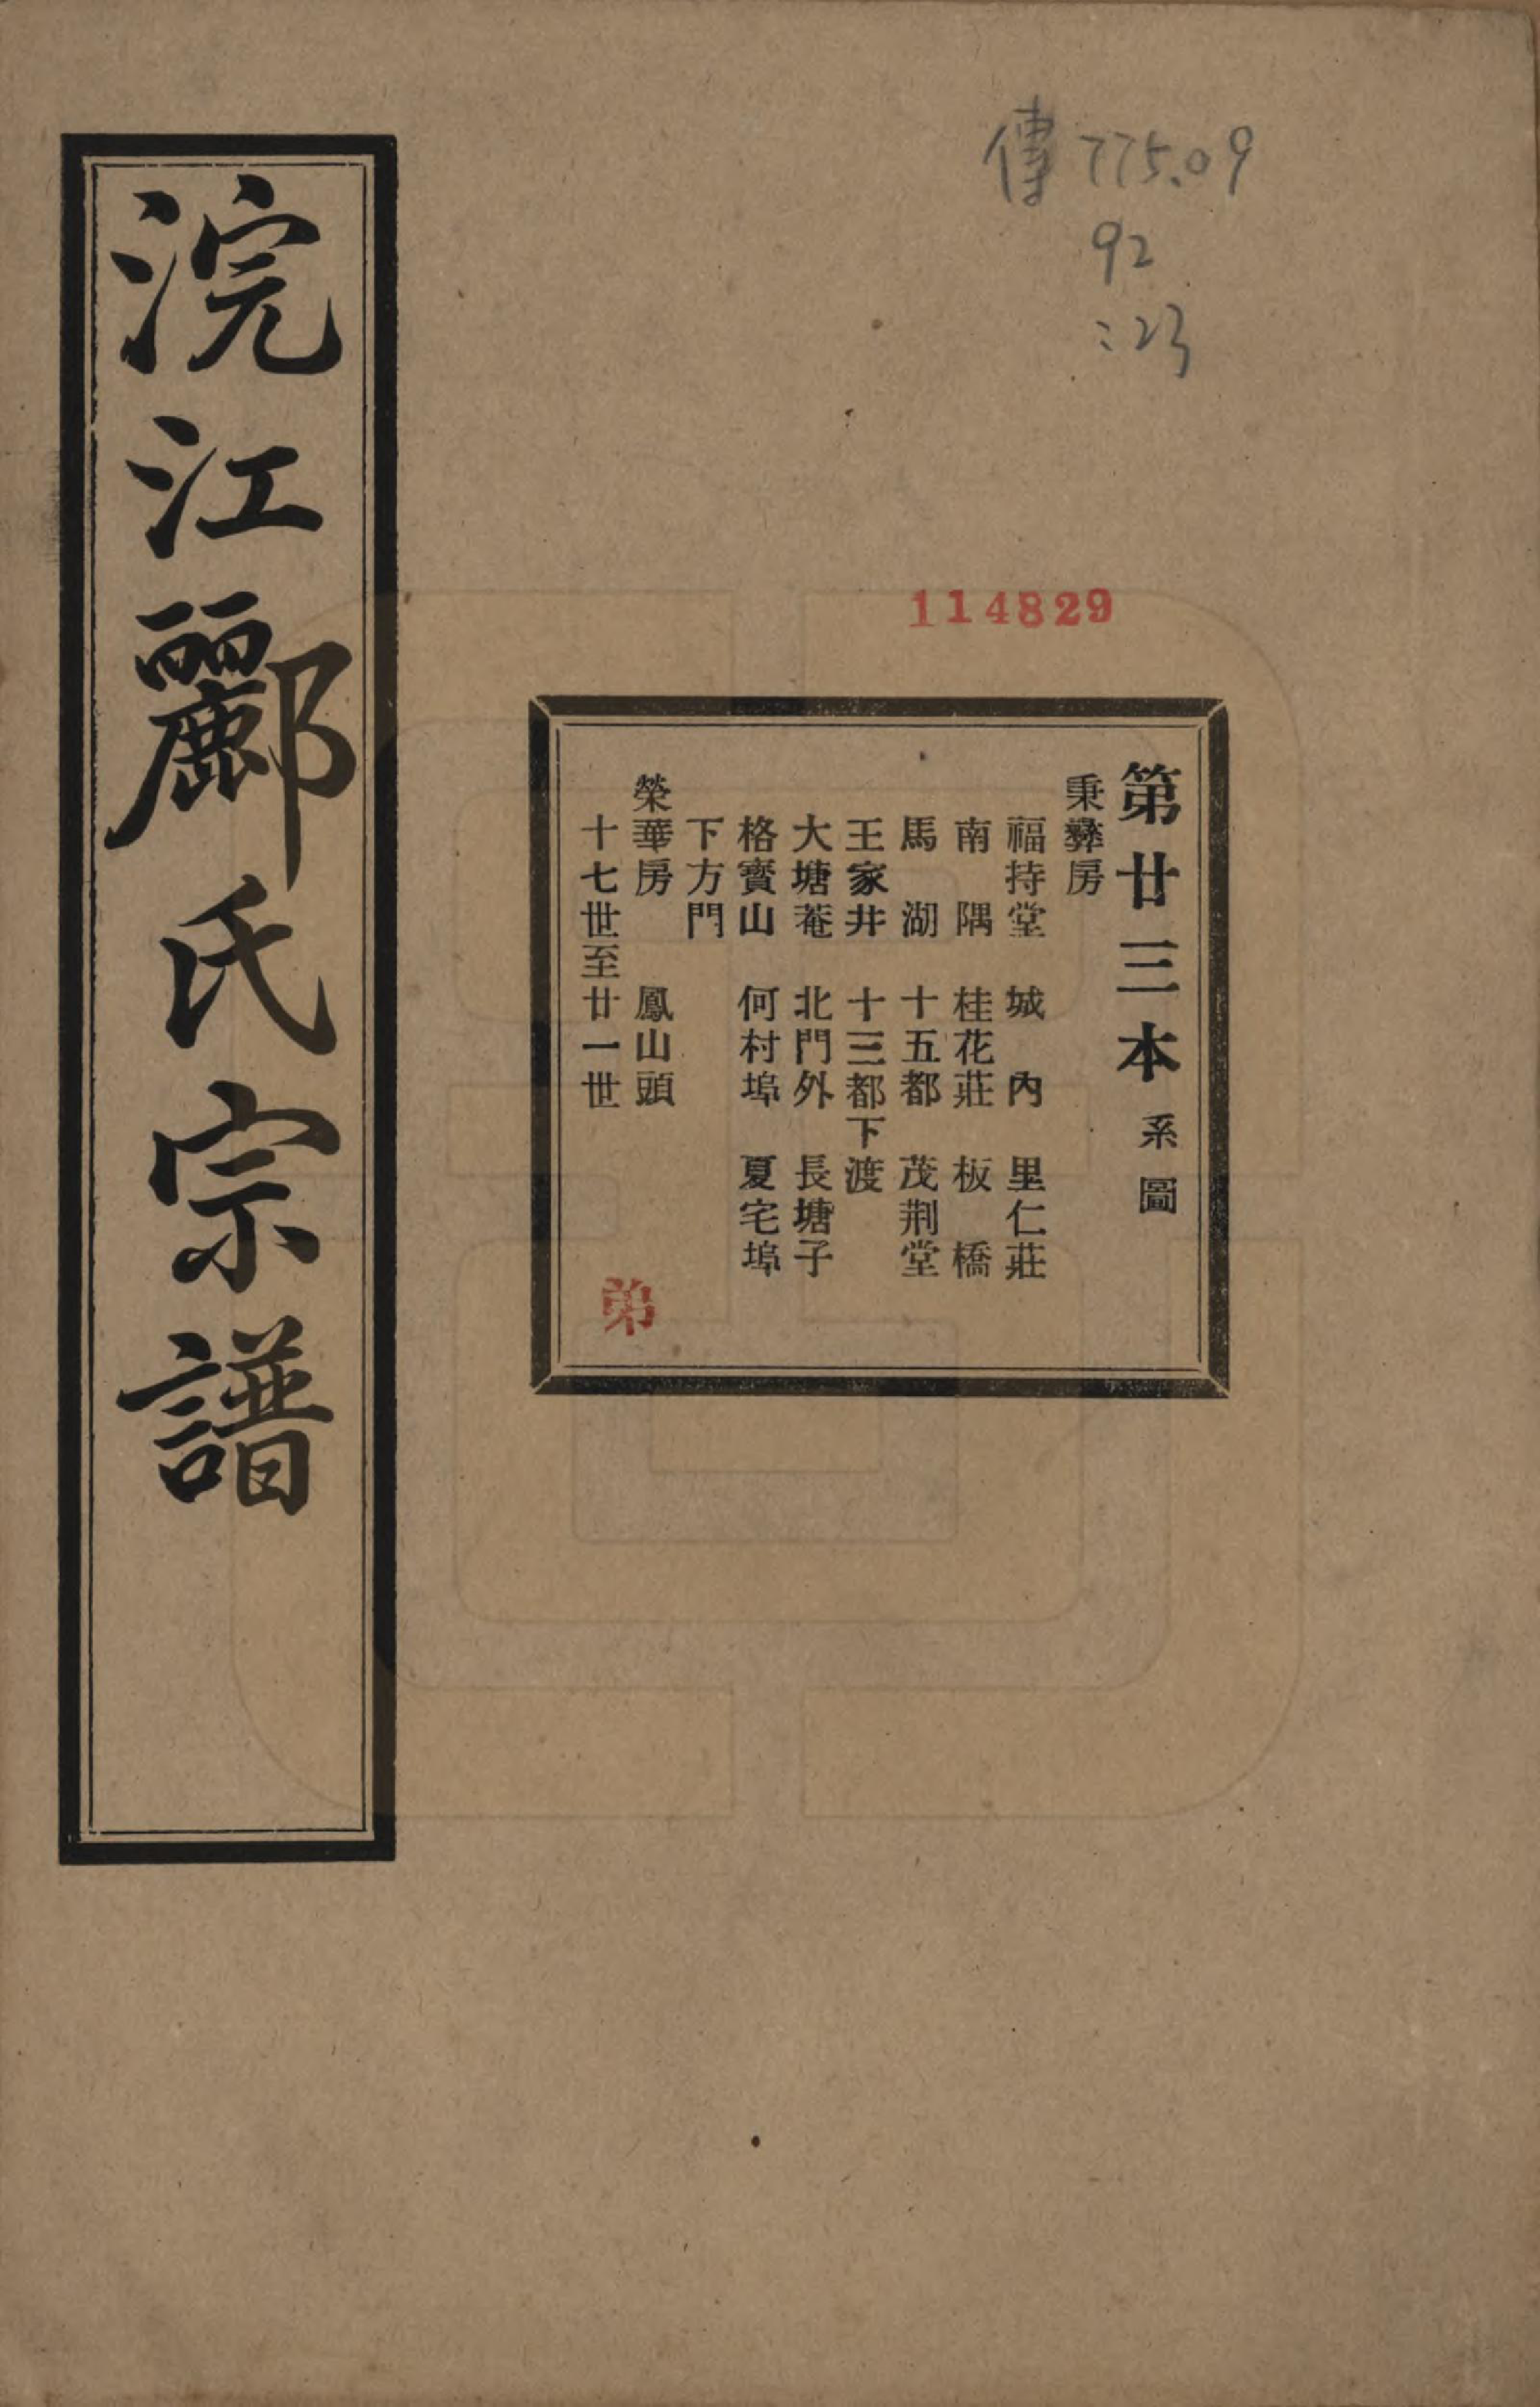 傳775.09
92
:23
114829
第廿三本 系圖
秉彝房
福持堂 城內 里仁莊
南隅 桂花莊 板橋
馬湖 十五都 茂荆堂
王家井 十三都下渡
大塘菴 北門外 長塘子
格賓山 何村埠 夏宅埠
下方門
榮華房 鳳山頭
十七世至廿一世
弟
浣江酈氏宗譜